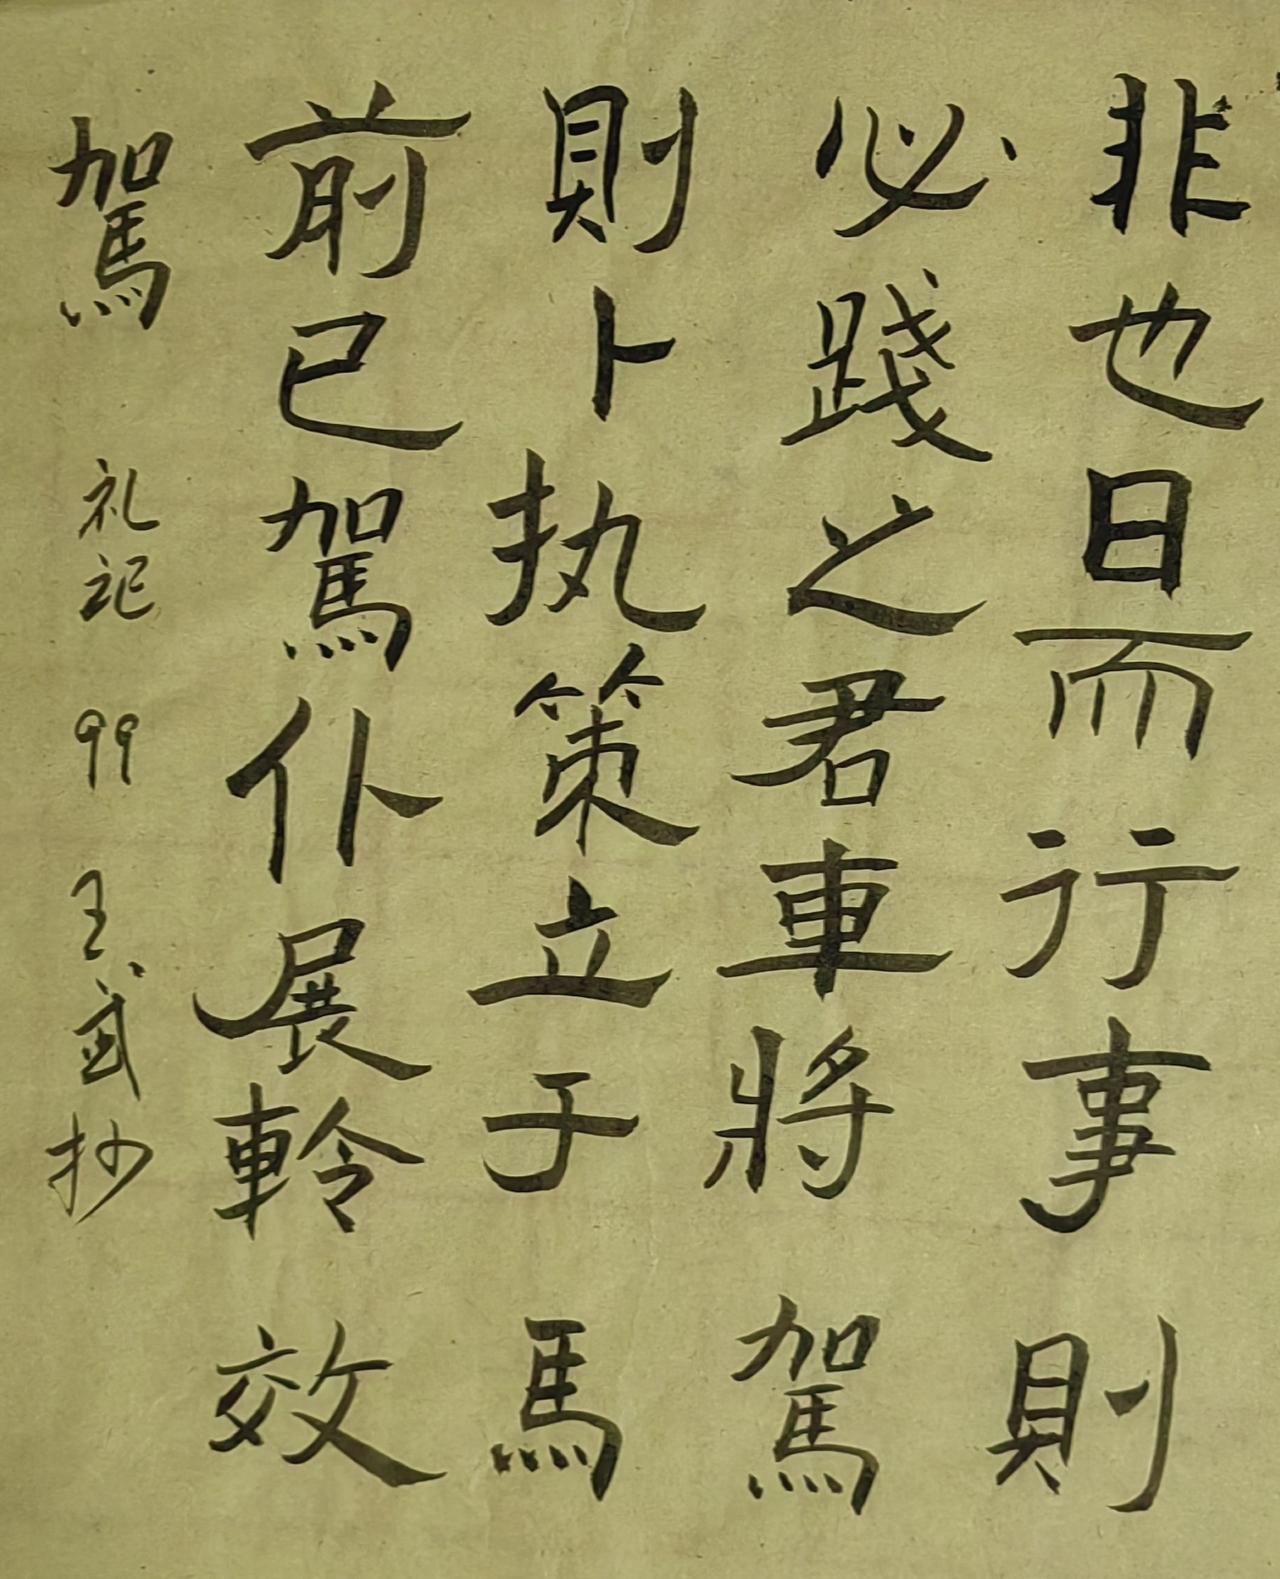 非也日而行事則
必踐之君車將駕
則卜执策立于馬
前已駕仆展軨效
駕 礼记 99 王武抄